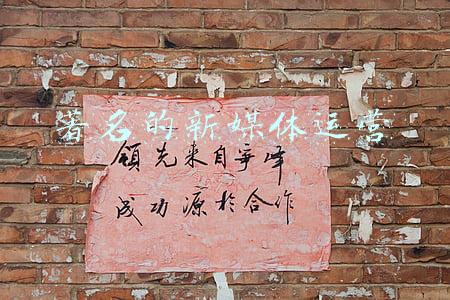 著名的新媒体运营
领先来自争峰
成功源于合作